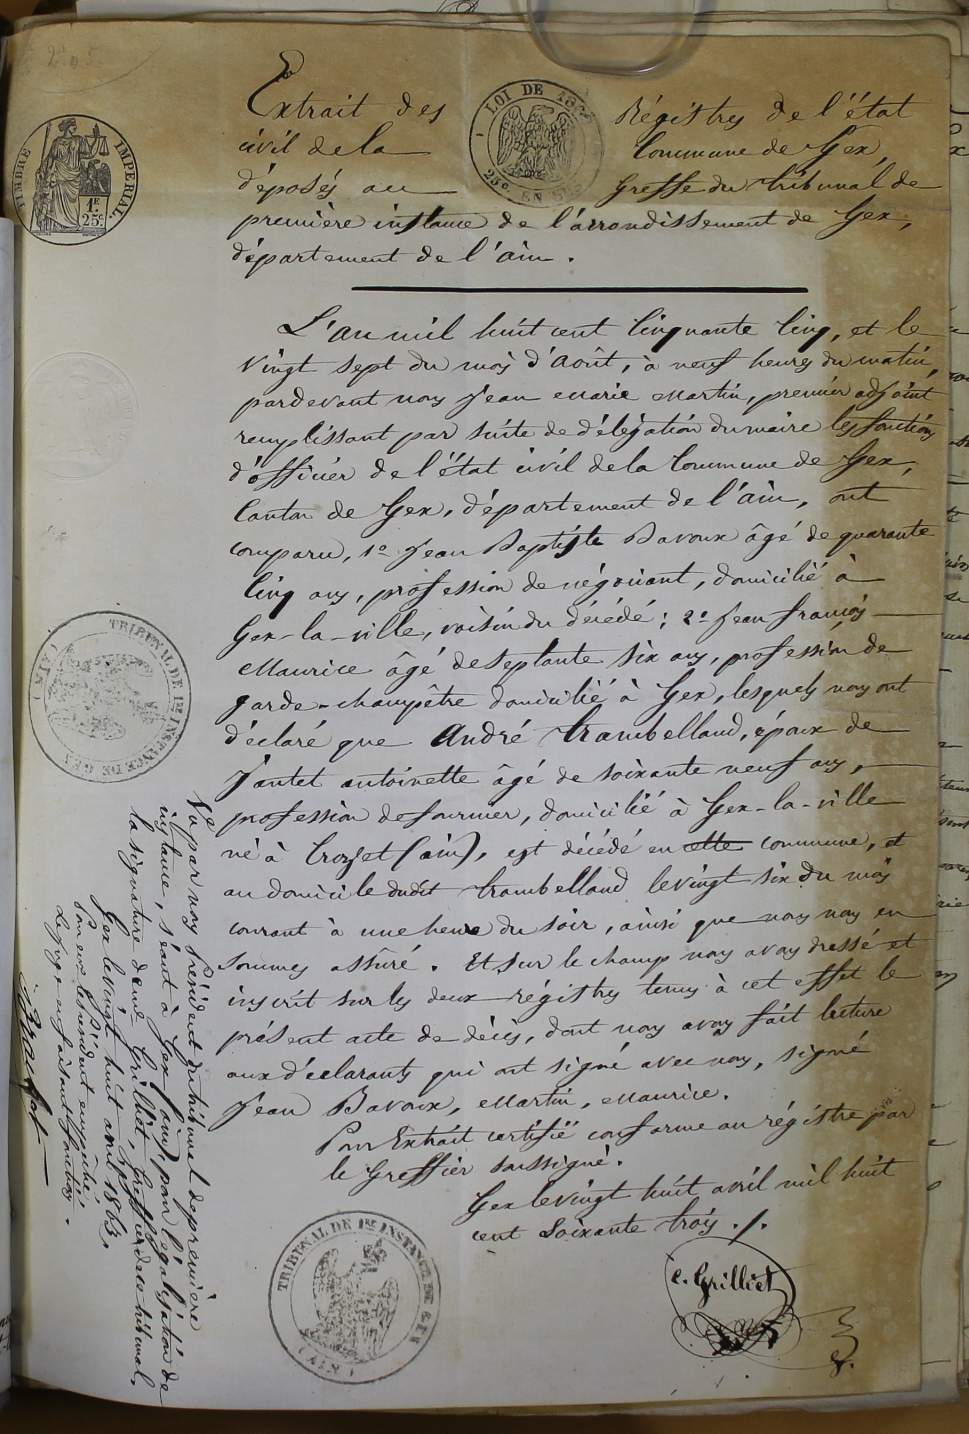 Extrait des Régistres de l'état
civil de la Commune de Gex,
déposés au Greffe du tribunal de
première instance de l'arrondissement de Gex,
département de l'ain.
LOI DE
25c. EN SUS
TIMBRE IMPERIAL
1F. 25c.
L'an mil huit cent Cinquante Cinq, et le
vingt sept du mois d'Août, à neuf heures du matin,
pardevant nous Jean Marie Martin, premier adjoint
remplissant par suite de délégation du maire les fonctions
d'officier de l'état civil de la Commune de Gex,
Canton de Gex, département de l'ain, ont
comparu, 1o Jean Baptiste Bavoux âgé de quarante
Cinq ans, profession de négociant, domicilié à
Gex-la-ville, voisin du décédé ; 2o Jean françois
Maurice âgé de septante six ans, profession de
garde-champêtre domicilié à Gex, lesquels nous ont
déclaré que André trambelland, époux de
Jantet antoinette âgé de soixante neuf ans,
profession de journier, domicilié à Gex-la-ville
né à Crozet (ain), est décédé en cette commune, et
au domicile dudit trambelland le vingt six du mois
courant à une heure du soir, ainsi que nous nous en
sommes assuré. Et sur le champ nous avons dressé et
inscrit sur les deux régistres tenus à cet effet le
présent acte de décès, dont nous avons fait lecture
aux déclarants qui ont signé avec nous, signé
Jean Bavoux, Martin, Maurice.
Pour Extrait certifié conforme au régistre par
le Greffier soussigné.
Gex le vingt huit avril mil huit
cent soixante trois ./.
C. Grilliet
TRIBUNAL DE 1RE INSTANCE DE GEX
(AIN)
Vu par nous Président du tribunal de première
instance, séant à Gex (ain), pour légalisation de
la signature de Me Grilliet, greffier de ce tribunal.
Gex le vingt huit avril 1863.
Pour Mr. le Président empêché
Le Juge en faisant fonction.
TRIBUNAL DE 1RE INSTANCE DE GEX
(AIN)